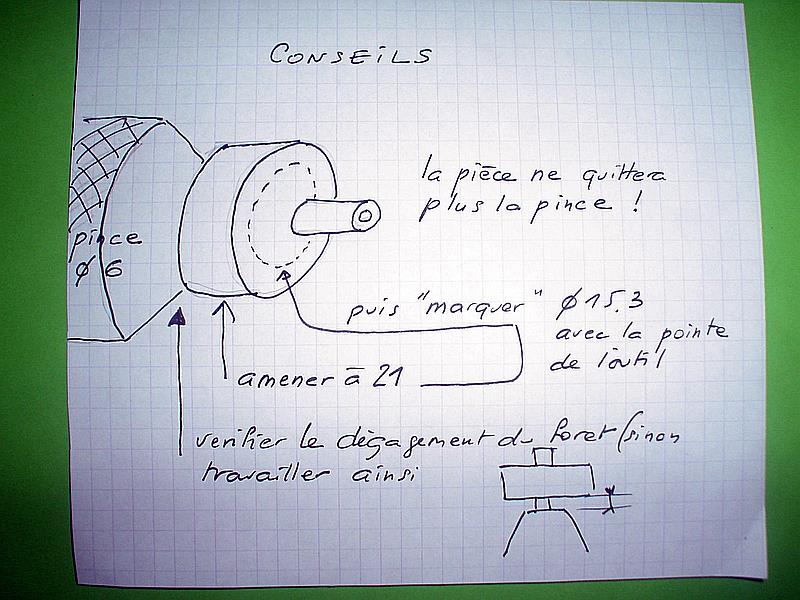 CONSEILS
la pièce ne quittera
plus la pince !
pince
ø 6
puis "marquer" ø 15.3
avec la pointe
de l'outil
amener à 21
verifier le dégagement du foret (sinon
travailler ainsi